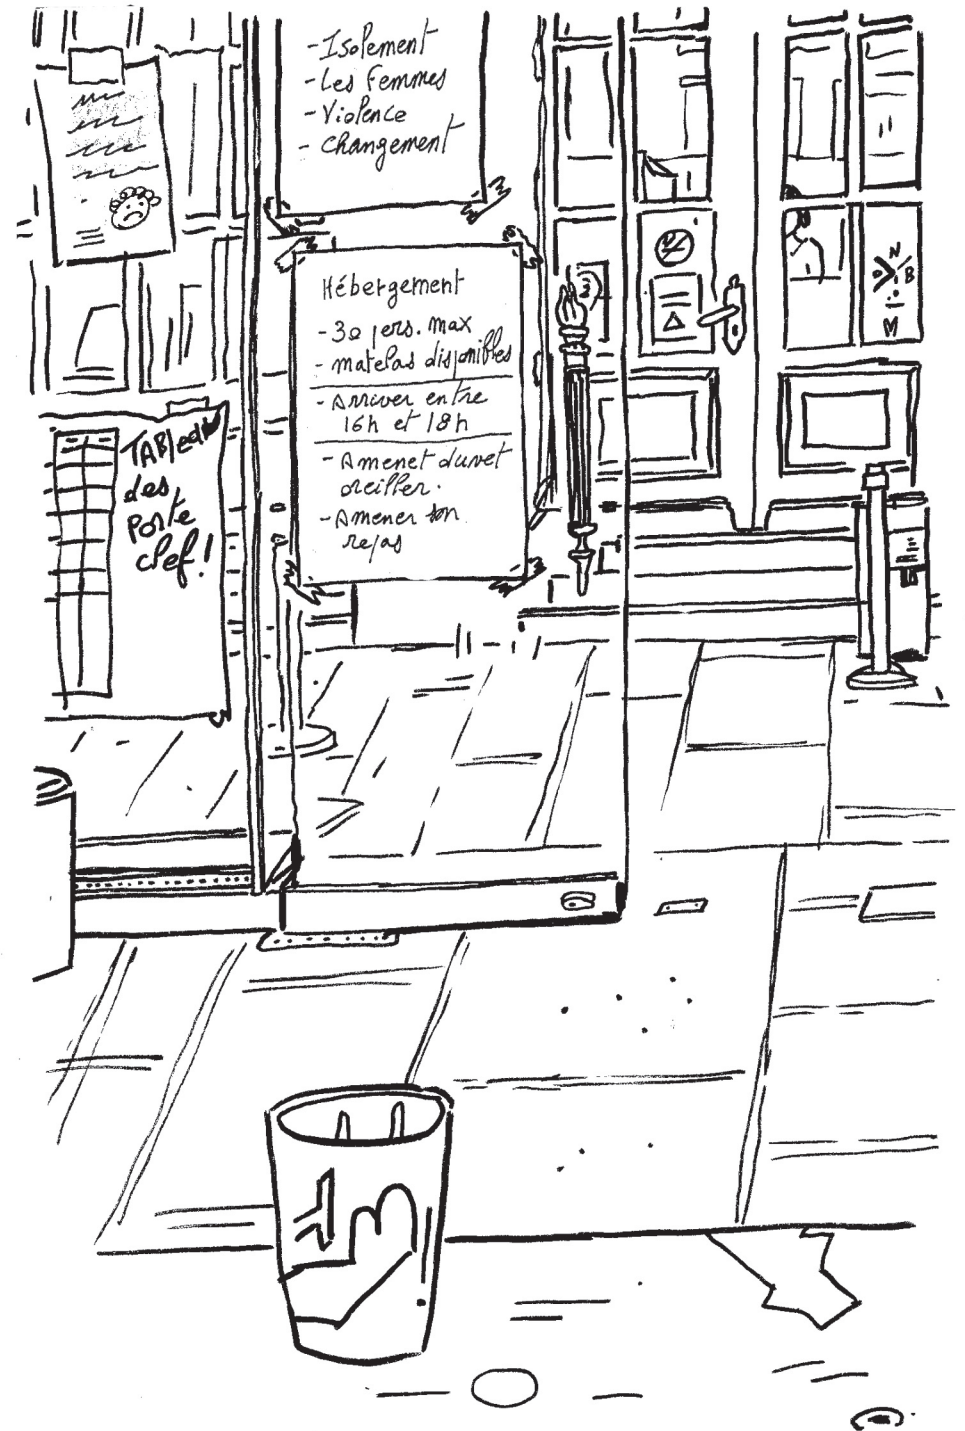 - Isolement
- Les Femmes
- Violence
- changement
Hébergement
- 30 pers. max
- matelas disponibles
- Arriver entre
16h et 18h
- Amenet duvet
oreiller.
- Amener son
repas
TABleau
des
Porte
clef!
N
B
M